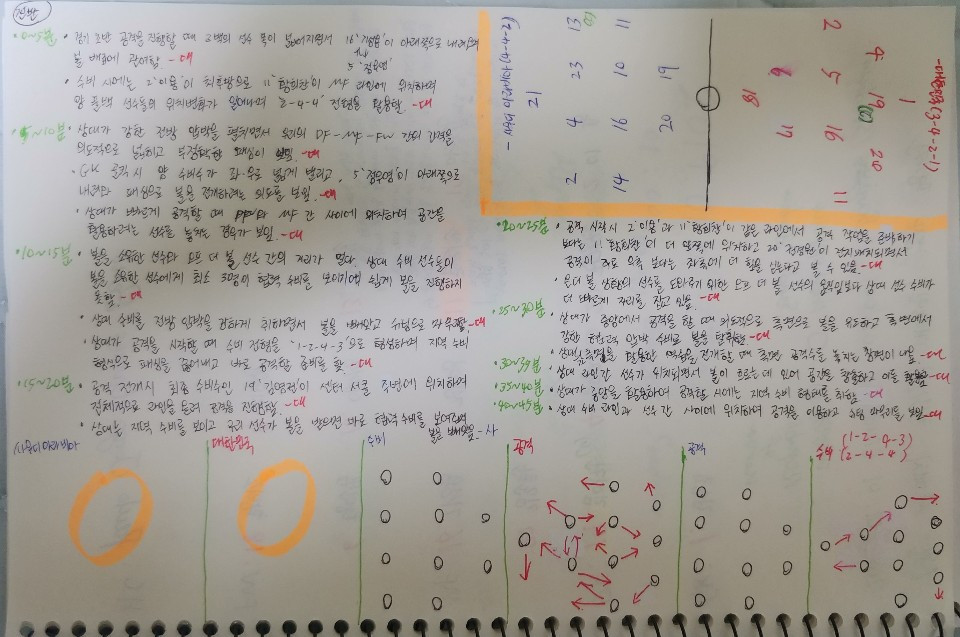 전반
• 0~5분 • 경기 초반 공격을 진행할 때 3백의 선수 폭이 넓어지면서 16 '기성용'이 아래쪽으로 내려와
5 '정우영'
볼 배급에 관여함 - 대
• 수비 시에는 2 '이용'이 최후방으로 11 '황희찬'이 MF 라인에 위치하며
양 측백 선수들의 위치변화가 일어나며 '2-4-4' 전형을 활용함 - 대
• 5~10분 • 상대가 강한 전방 압박을 펼치면서 우리의 DF-MF-FW 간의 간격을
의도적으로 넓히고 부정확한 패싱이 보임. - 대
• GK 공격 시 양 수비수가 좌·우로 넓게 벌리고, 5 '정우영'이 아래쪽으로
내려와 패싱으로 볼을 전개하려는 의도를 보임. - 대
• 상대가 빠르게 공격할 때 DF와 MF 간 사이에 위치하여 공간을
활용하려는 선수를 놓치는 경우가 보임. - 대
• 10~15분 • 볼을 소유한 선수와 오프 더 볼 선수 간의 거리가 멀다. 상대 수비 선수들이
볼을 소유한 선수에게 최소 3명이 협력 수비를 보이기에 쉽게 볼을 진행하지
못함. - 대
• 상대 수비를 전방 압박을 강하게 취하면서 볼을 빼앗고 슈팅으로 마무리함. - 대
• 상대가 공격을 시작할 때 수비 전형을 '1-2-4-3'으로 형성하며 지역 수비
형상으로 패싱을 끊어내고 바로 공격할 준비를 함. - 대
• 15~20분 • 공격 전개시 최종 수비수인 19 '김영권'이 센터 서클 주변에 위치하여
전체적으로 라인을 올려 공격을 진행함. - 대
• 상대는 지역 수비를 보이고 우리 선수가 볼을 받으면 바로 협력 수비를 보여주며
볼을 빼앗음. - 사
- 사우디아라비아 (4-4-2)
13 11
23 10 19
21
4 16 20
2 14
- 대한민국 (3-4-2-1)
2
4
6 5
1
18 19
17 16
20
11
• 20~25분 • 공격 시작시 2 '이용'과 11 '황희찬'이 같은 라인에서 공격 작업을 준비하기
보다는 11 '황희찬'이 더 앞쪽에 위치하고 20 '장현수'이 전치배치되면서
공격이 좌측 우측 보다는 좌측에 더 힘을 싣는다고 볼 수 있음 - 대
• 온더 볼 상황의 선수를 도와주기 위한 오프 더 볼 선수의 움직임보다 상대 선수 수비가
더 빠르게 자리를 잡고 있음. - 대
• 25~30분 • 상대가 중앙에서 공격을 할 때 의도적으로 측면으로 볼을 유도하고 측면에서
강한 협력과 압박 수비로 볼을 탈취함 - 대
• 상대가 측면을 활용한 역습을 전개할 때 측면 공격수를 놓치는 장면이 나옴 - 대
• 30~35분 • 상대 라인간 선수가 위치되면서 볼이 흐르는 데 있어 공간을 활용하고 이를 활용함 - 대
• 35~40분 • 상대가 중앙을 활용하여 공격할 시에는 지역 수비 형태를 취함. - 대
• 40~45분 • 상대 수비 라인과 선수 간 사이에 위치하여 공격을 이용하고 슈팅 마무리를 보임 - 대
사우디아라비아
대한민국
수비
공격
공격
수비 (1-2-4-3)
(2-4-4)